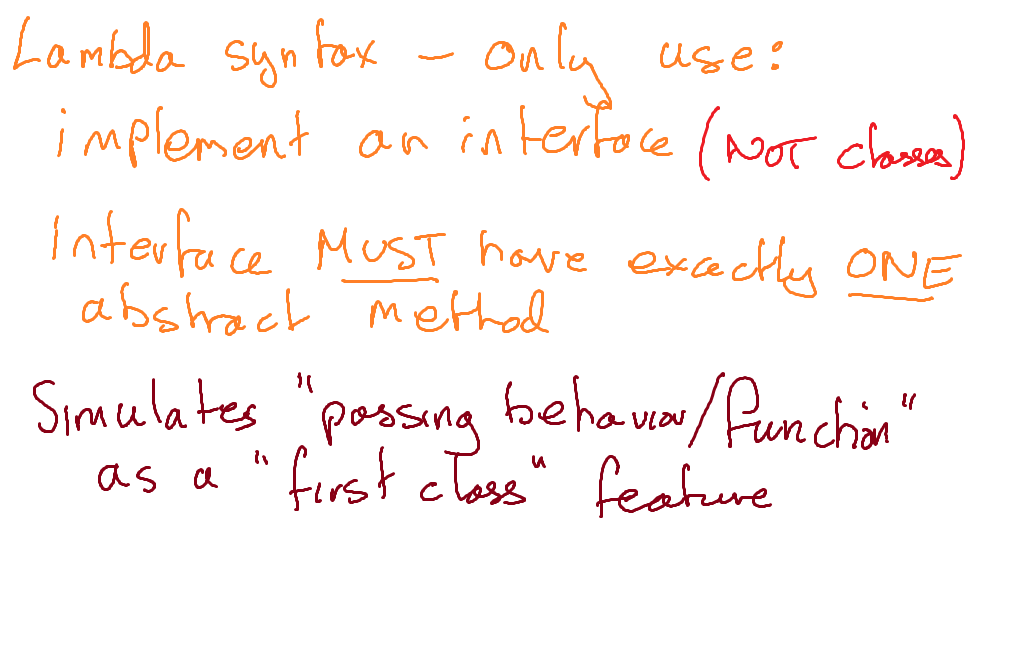 Lambda syntax - only use:
implement an interface (NOT classes)
Interface MUST have exactly ONE
abstract method
Simulates "passing behavior/function"
as a "first class" feature